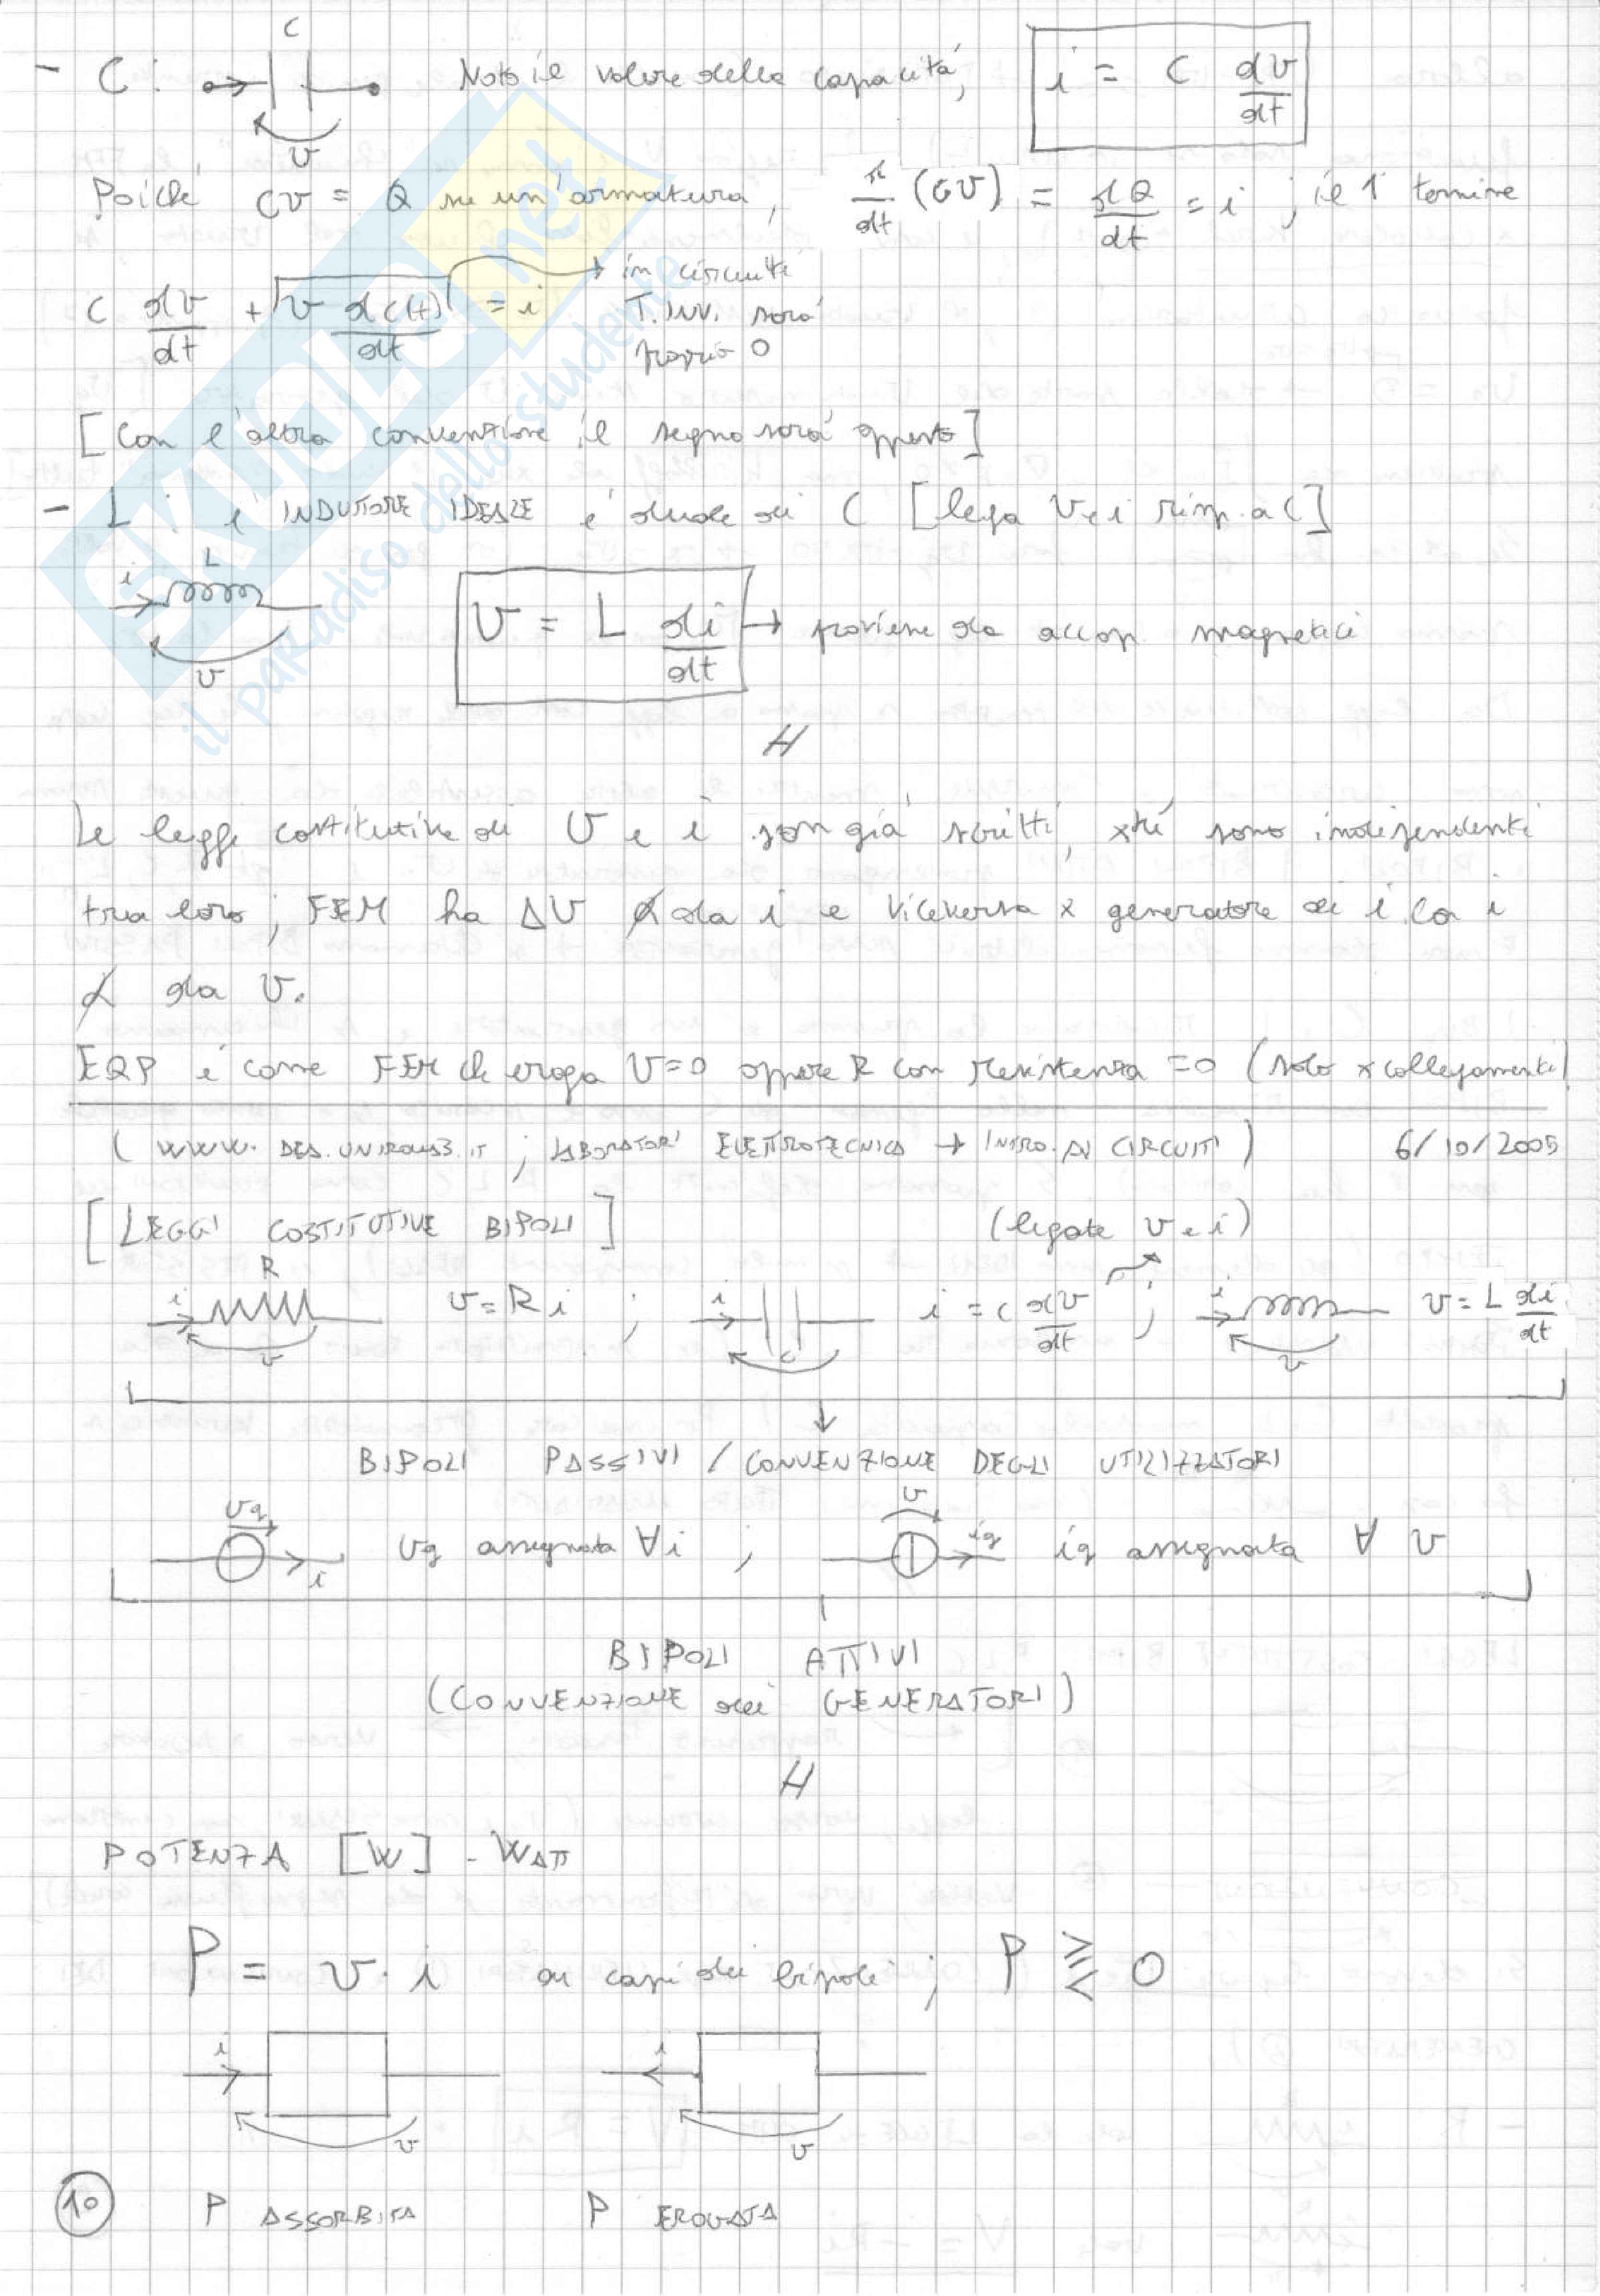 C
- C : Noto il valore della capacità, i = C dv/dt
v
Poiché cv = Q su un'armatura, d/dt (CV) = dQ/dt = i ; il 1° termine
C dv/dt + v dC(t)/dt = i → in circuiti
T. INV. sarà
proprio 0
[Con l'altra convenzione il segno sarà opposto]
- L : l'INDUTTORE IDEALE è duale di C [lega v e i risp. a C]
i L
v
v = L di/dt → proviene da accop. magnetici
H
Le leggi costitutive di V e i son già scritti, xché sono indipendenti
tra loro; FEM ha ΔV da i e viceversa x generatore di i la i
da V.
EQP è come FEM che eroga V=0 oppure R con resistenza =0 (solo x collegamenti)
(WWW.DEA.UNIROMA3.IT ; LABORATORI ELETTROTECNICA → INTRO. AI CIRCUITI) 6/10/2005
[LEGGI COSTITUTIVE BIPOLI] (legate v e i)
R
i v v = R i ; i i = C dv/dt ; i v v = L di/dt
BIPOLI PASSIVI / CONVENZIONE DEGLI UTILIZZATORI
vg i vg assegnata ∀ i ; v ig ig assegnata ∀ v
BIPOLI ATTIVI
(CONVENZIONE dei GENERATORI)
H
POTENZA [W] - WATT
P = v · i ai capi dei bipoli ; P ⋛ 0
i v i v
P ASSORBITA P EROGATA
10
SKUOLA.net
il paradiso dello studente